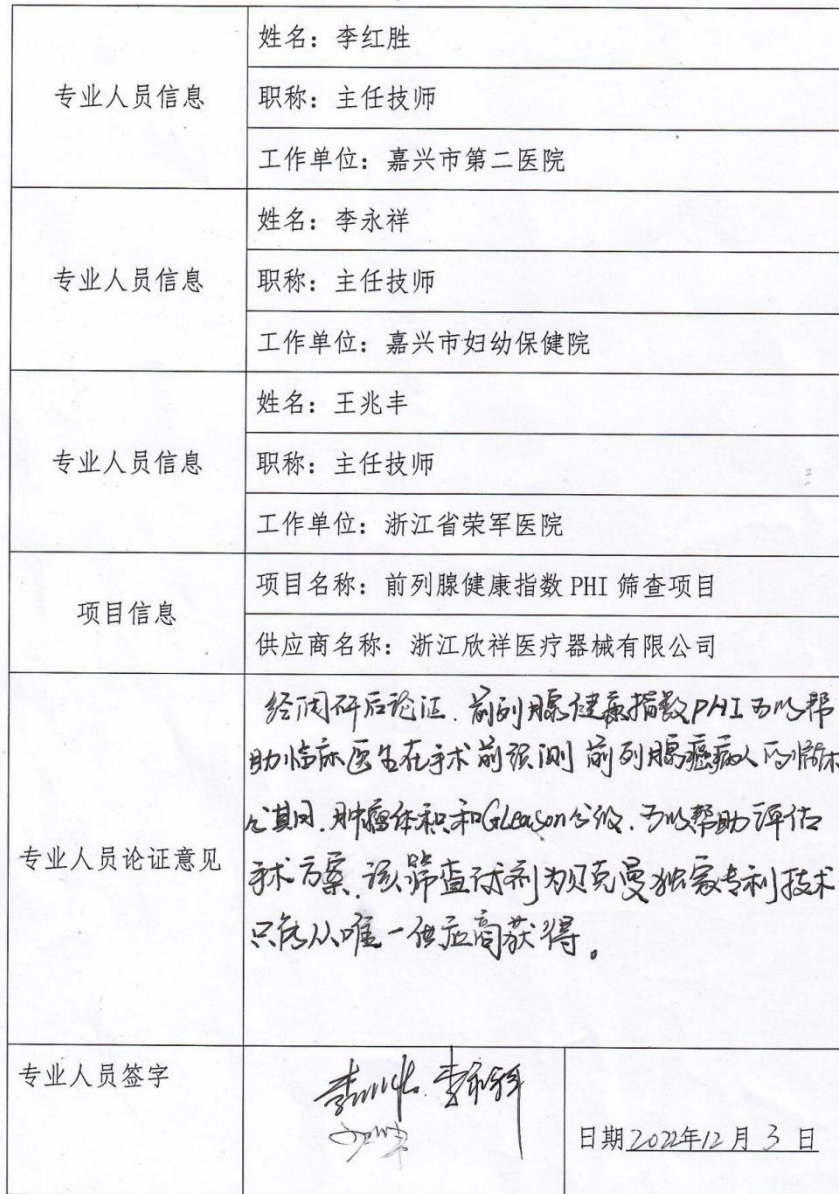 专业人员信息
姓名：李红胜
职称：主任技师
工作单位：嘉兴市第二医院
专业人员信息
姓名：李永祥
职称：主任技师
工作单位：嘉兴市妇幼保健院
专业人员信息
姓名：王兆丰
职称：主任技师
工作单位：浙江省荣军医院
项目信息
项目名称：前列腺健康指数 PHI 筛查项目
供应商名称：浙江欣祥医疗器械有限公司
专业人员论证意见
经调研后论证.前列腺健康指数PHI可以帮
助临床医生在手术前预测前列腺癌病人的临床
分期.肿瘤体积和Gleason分级.可以帮助评估
手术方案.该筛查试剂为贝克曼独家专利技术
只能从唯一供应商获得。
专业人员签字
李永祥
日期2022年12月3日